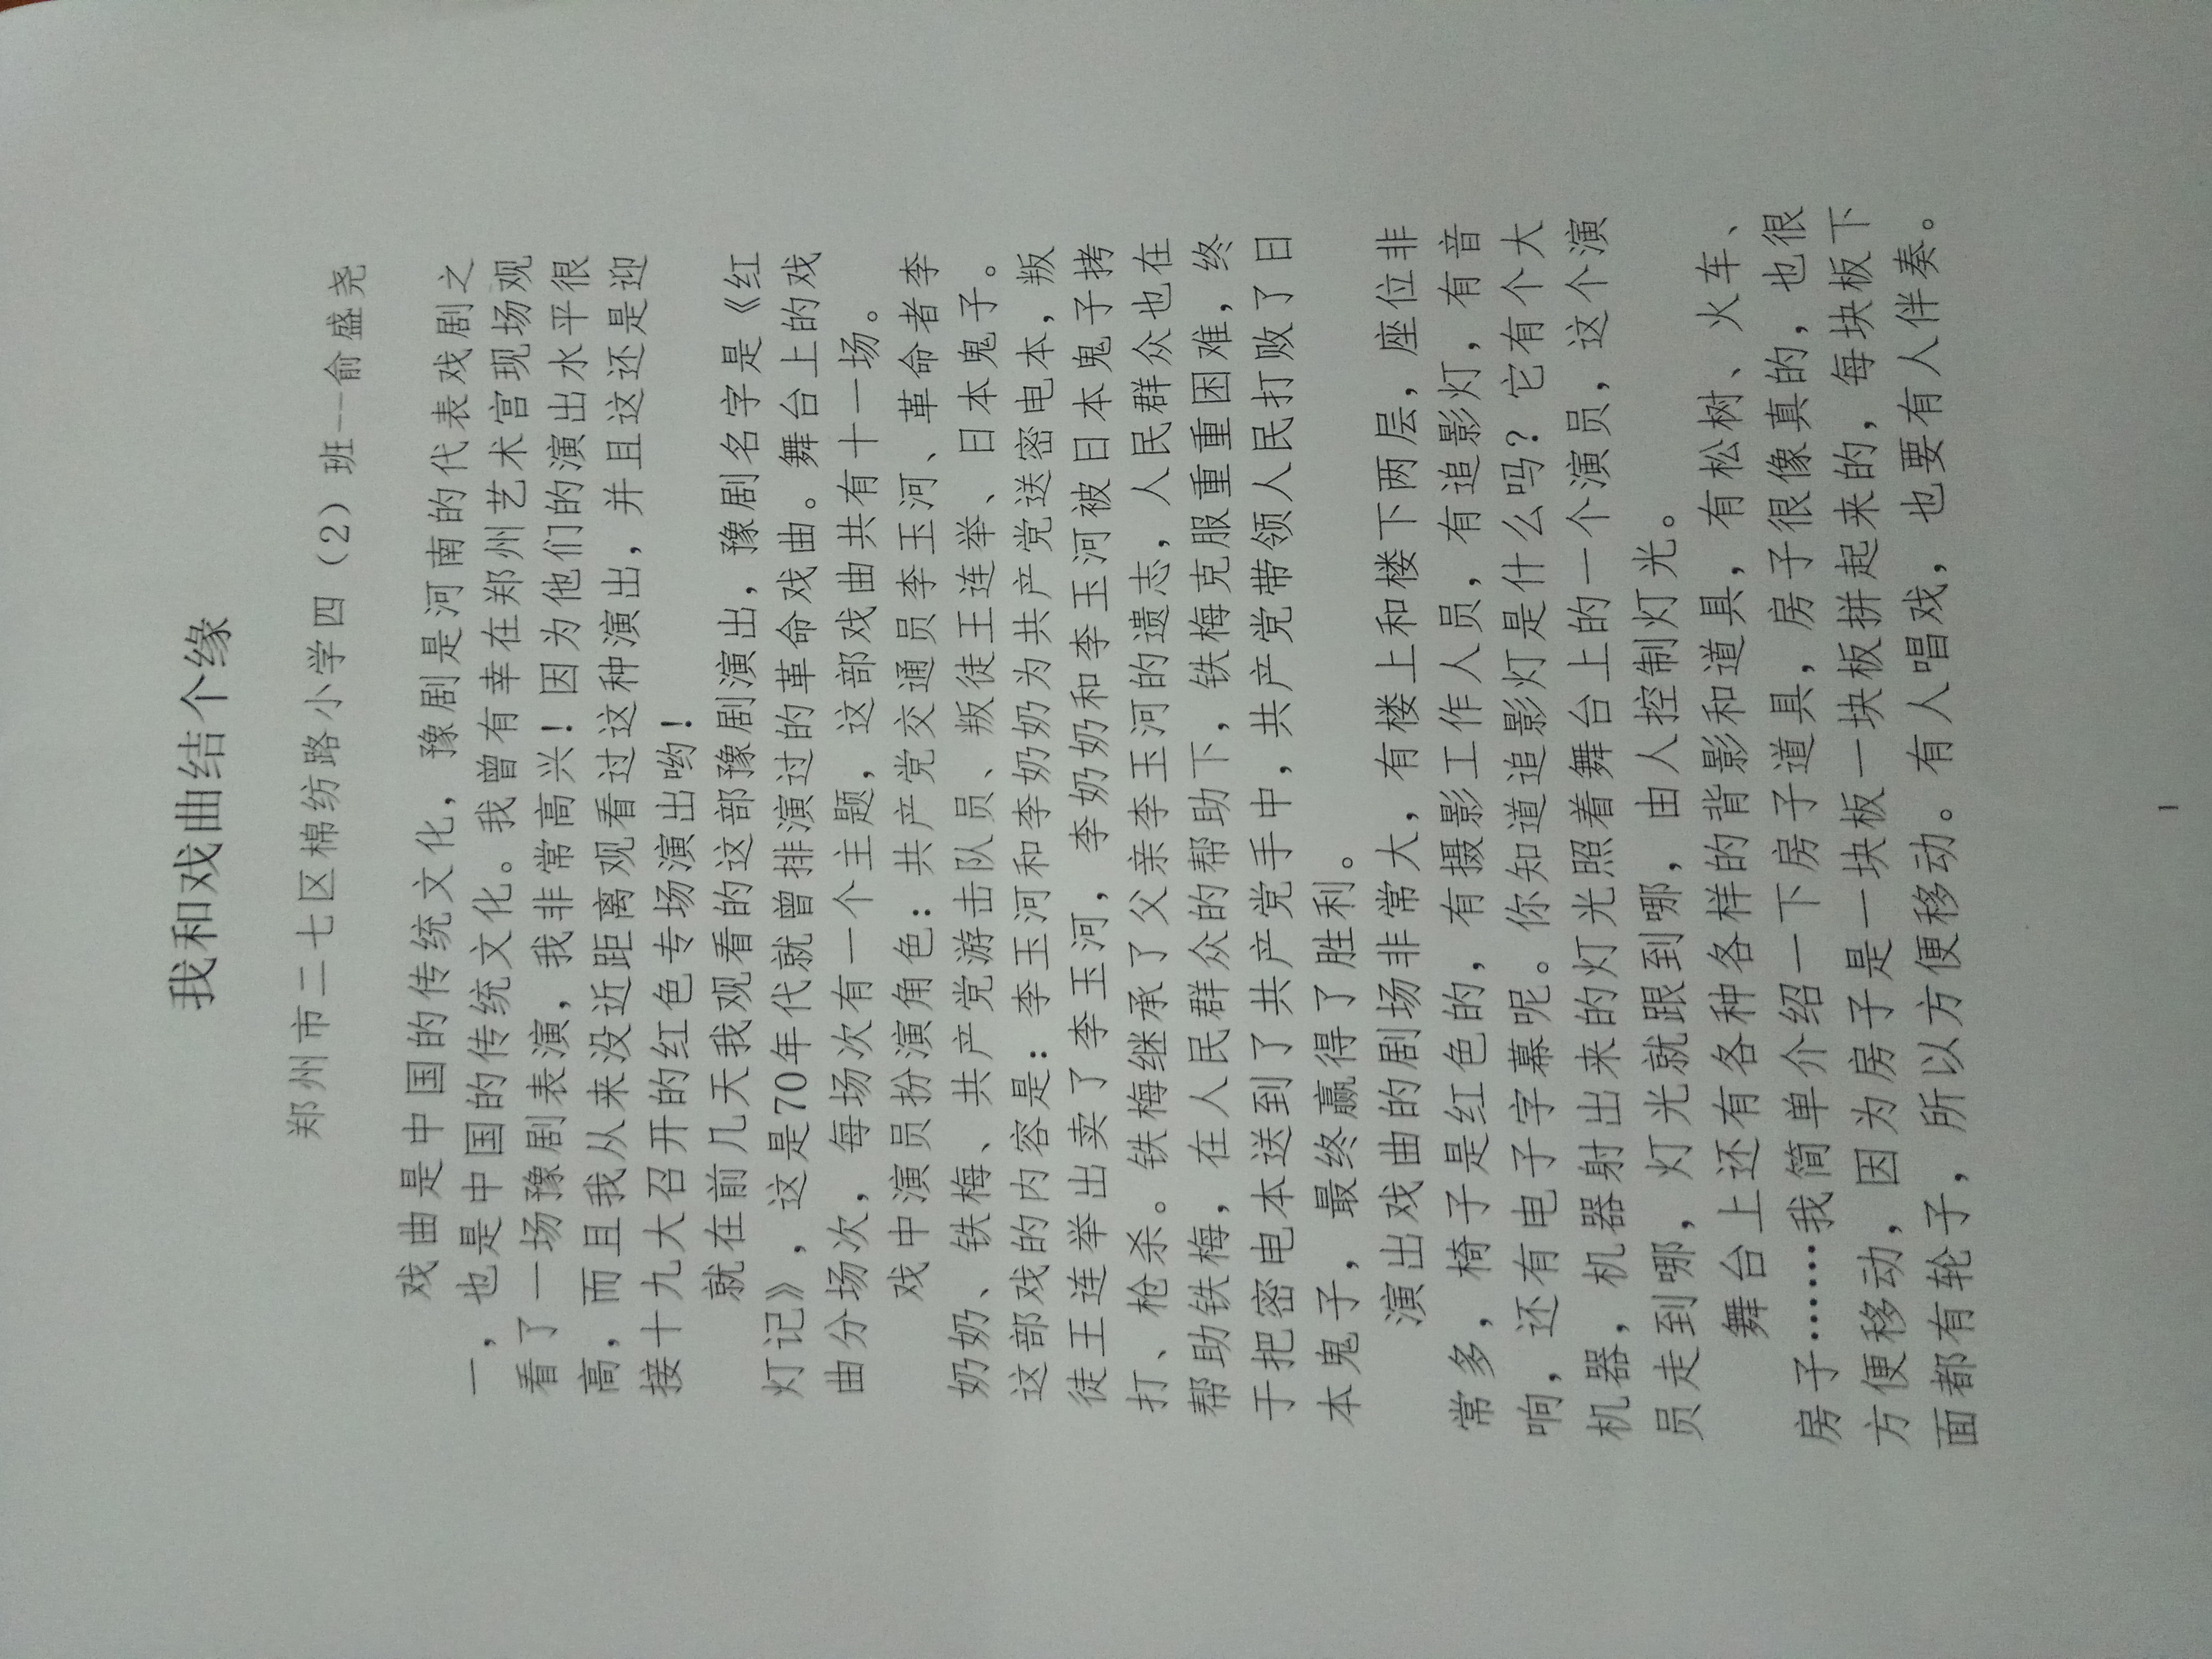 我和戏曲结个缘
郑州市二七区棉纺路小学四（2）班--俞盛尧
戏曲是中国的传统文化，豫剧是河南的代表戏剧之
一，也是中国的传统文化。我曾有幸在郑州艺术宫现场观
看了一场豫剧表演，我非常高兴！因为他们的演出水平很
高，而且我从来没近距离观看过这种演出，并且这还是迎
接十九大召开的红色专场演出哟！
就在前几天我观看的这部豫剧演出，豫剧名字是《红
灯记》，这是70年代就曾排演过的革命戏曲。舞台上的戏
曲分场次，每场次有一个主题，这部戏曲共有十一场。
戏中演员扮演角色：共产党交通员李玉河、革命者李
奶奶、铁梅、共产党游击队员、叛徒王连举、日本鬼子。
这部戏的内容是：李玉河和李奶奶为共产党送密电本，叛
徒王连举出卖了李玉河，李奶奶和李玉河被日本鬼子拷
打、枪杀。铁梅继承了父亲李玉河的遗志，人民群众也在
帮助铁梅，在人民群众的帮助下，铁梅克服重重困难，终
于把密电本送到了共产党手中，共产党带领人民打败了日
本鬼子，最终赢得了胜利。
演出戏曲的剧场非常大，有楼上和楼下两层，座位非
常多，椅子是红色的，有摄影工作人员，有追影灯，有音
响，还有电子字幕呢。你知道追影灯是什么吗？它有个大
机器，机器射出来的灯光照着舞台上的一个演员，这个演
员走到哪，灯光就跟到哪，由人控制灯光。
舞台上还有各种各样的背影和道具，有松树、火车、
房子……我简单介绍一下房子道具，房子很像真的，也很
方便移动，因为房子是一块板一块板拼起来的，每块板下
面都有轮子，所以方便移动。有人唱戏，也要有人伴奏。
1